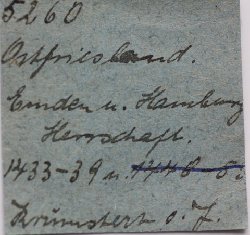 5260
Ostfriesland.
Emden u. Hamburg
Herrschaft.
1433-39 u.
Krumstert o. J.